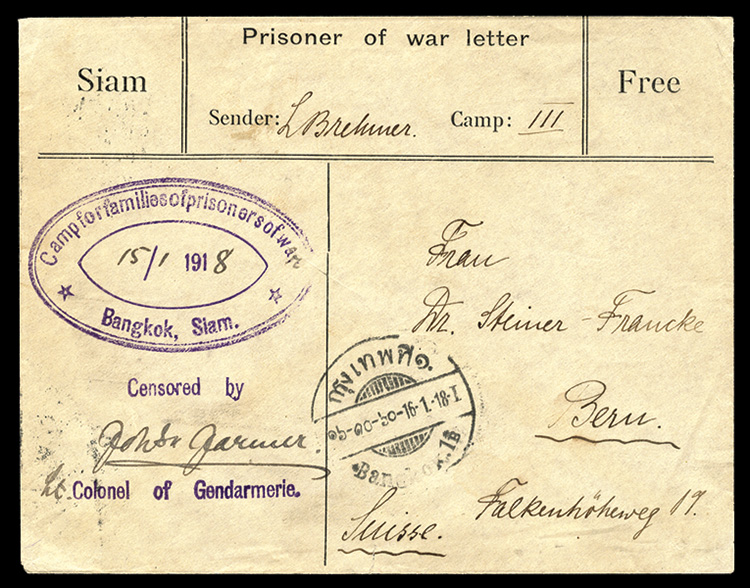 Prisoner of war letter
Siam
Free
Sender: L Brehmer. Camp: III
Camp for families of prisoners of war
15/1 1918
Bangkok, Siam.
Censored by
Lt. Colonel of Gendarmerie.
Frau
Dr. Steiner-Francke
Bern.
Falkenhöheweg 19.
Suisse.
กรุงเทพที่๑.
๑๖-๑๐-๖๐-16·1·18·I
Bangkok.1